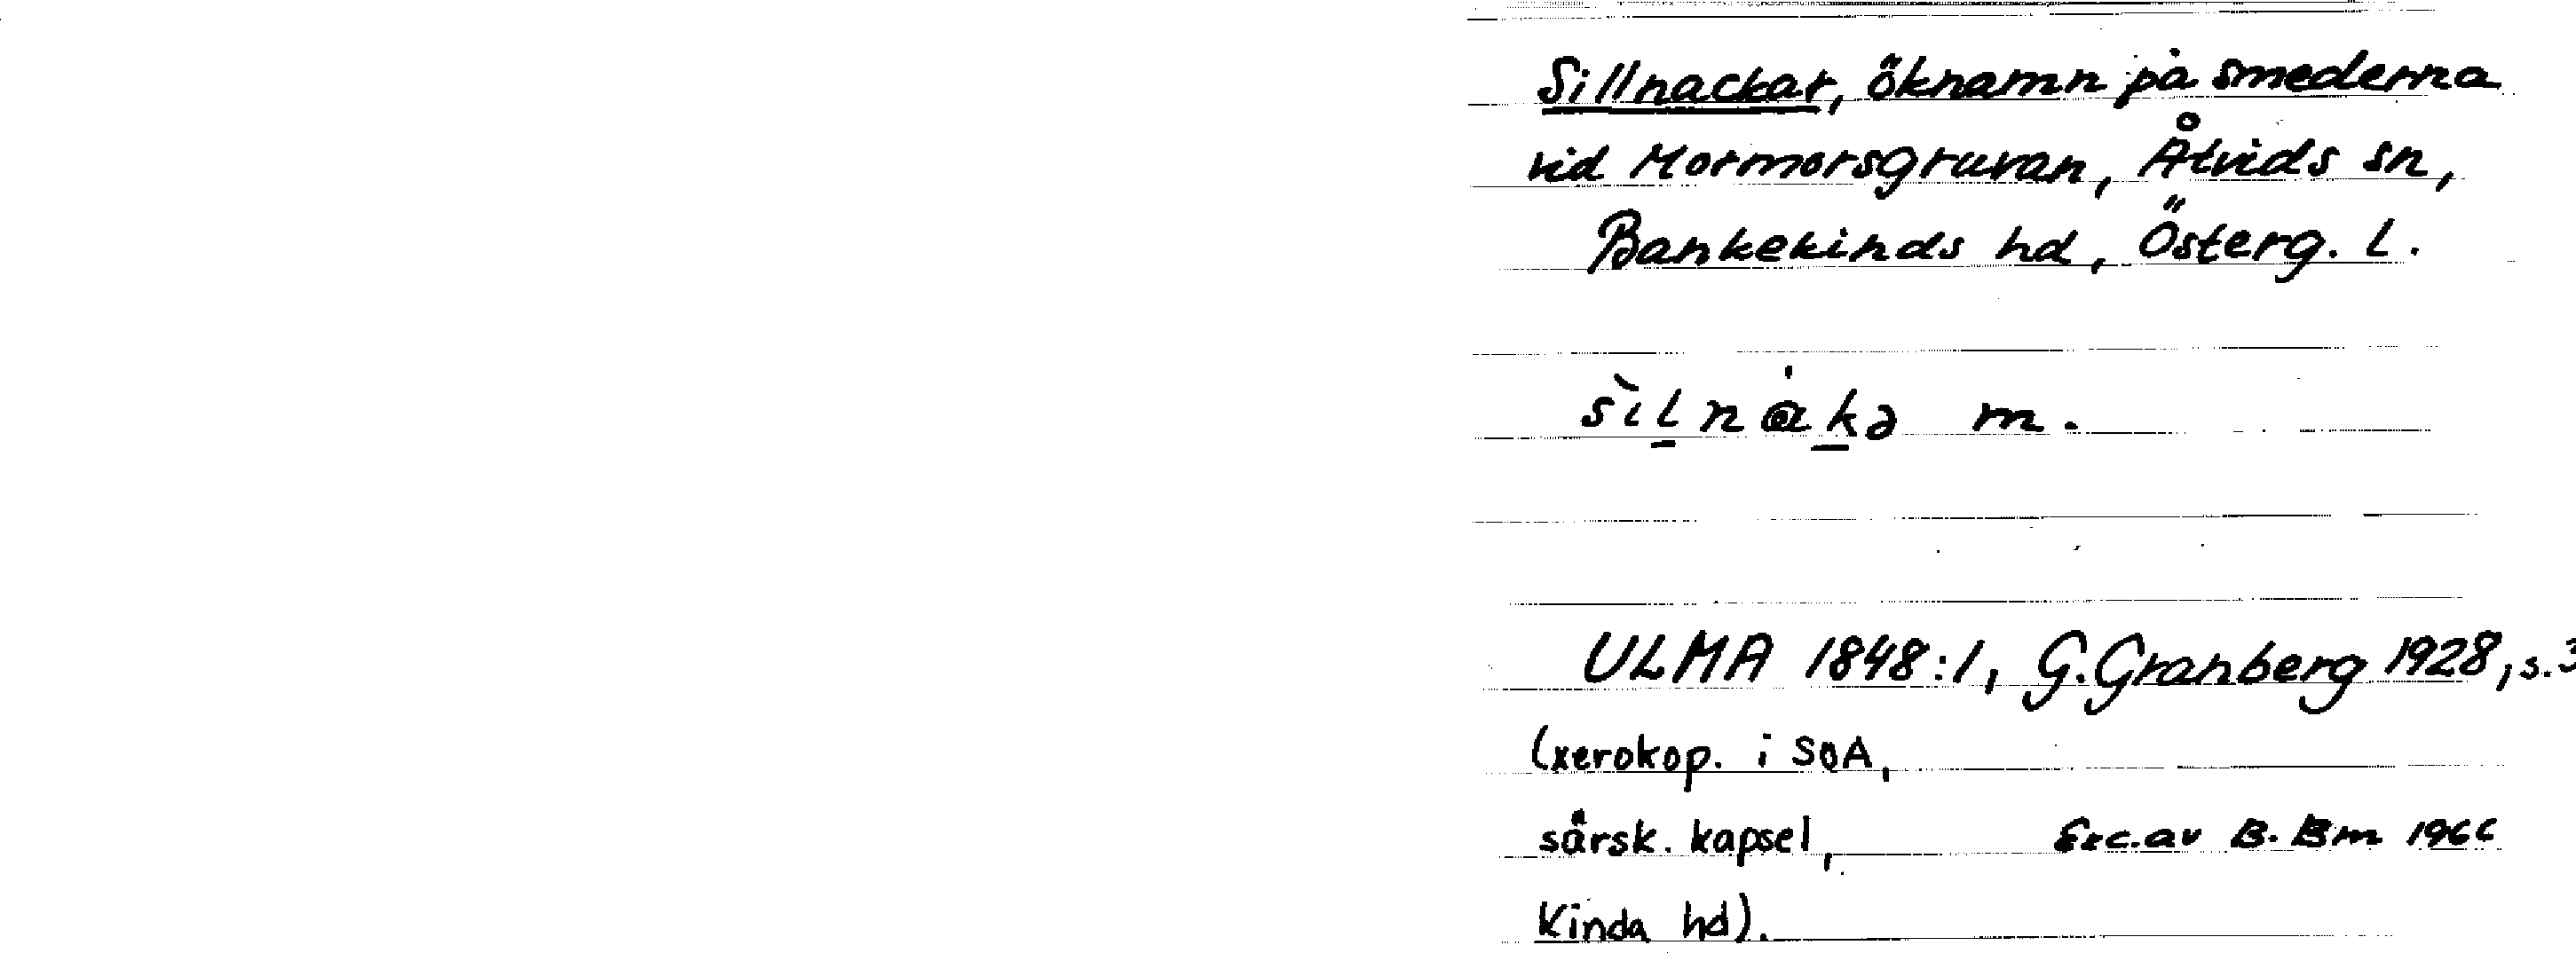 Sillnackar, öknamn på smederna
vid Mormorsgruvan, Åtvids sn,
Bankekinds hd, Österg. l.
m.
ULMA 1848:1, G. Granberg 1928, s. 3
(xerokop. i SOA,
särsk. kapsel,
Exc. av B. Bm 1966
Kinda hd).